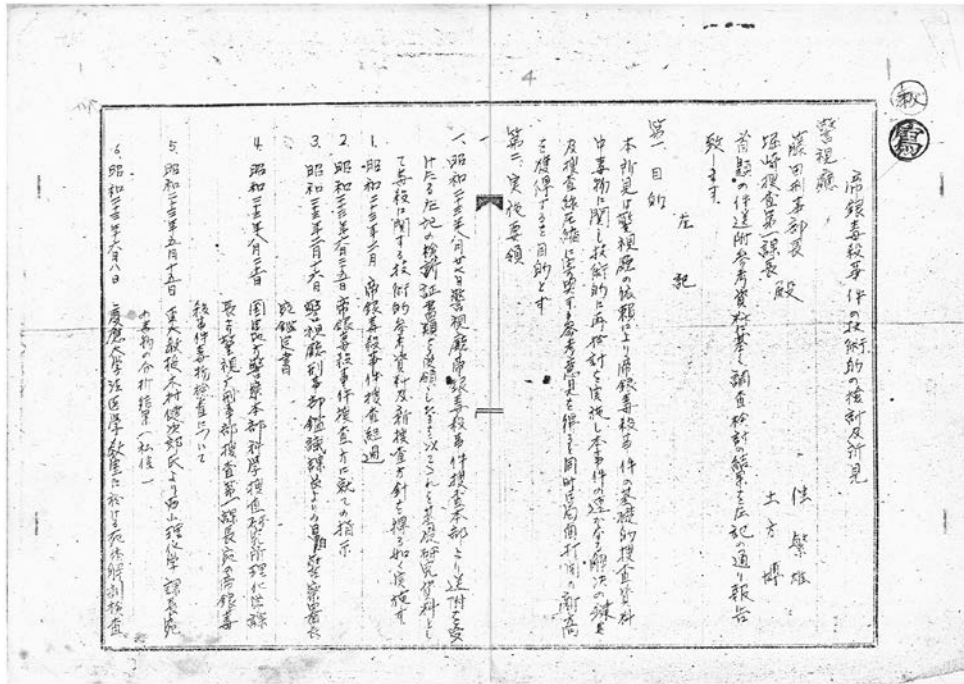 4
秘
写
帝銀毒殺事件の技術的検討及所見
警視廳
藤田刑事部長
堀崎捜査第一課長 殿
伴 繁雄
土方 博
首題の件送附参考資料に基く調査検討の結果を左記の通り報告
致します
左記
第一 目的
本所見は警視廳の依頼により帝銀毒殺事件の基礎的捜査資料
中毒物に関し技術的に再検討を実施し本事件の速かなる解決の鍵
及捜査線圧縮に寄與する参考意見を得ると同時に局面打開の新
を獲得するを目的とす
第二、実施要領
一、昭和二十三年八月 日警視廳帝銀毒殺事件捜査本部より送附を受
けたる左記の 証書類を受領したるを以てこれを基礎研究資料とし
て毒殺に関する技術的参考資料及新捜査方針を得る如く実施す
1. 昭和二十三年二月 帝銀毒殺事件捜査経過
2. 昭和二十三年六月二五日 帝銀毒殺事件捜査方に就ての指示
3. 昭和二十三年二月十六日 警視廳刑事部鑑識課長よりの目白警察署長
宛鑑定書
4. 昭和二十三年八月二十日 国家地方警察本部科学捜査研究所理化学課
長より警視廳刑事部捜査第一課長宛の帝銀毒
殺事件毒物検査について
5. 昭和二十三年五月十五日 東大教授木村健次郎氏より西山理化学課長宛
の毒物の分析結果(私信)
6. 昭和二十三年六月八日 慶應大学法医学教室に於ける死体解剖検査